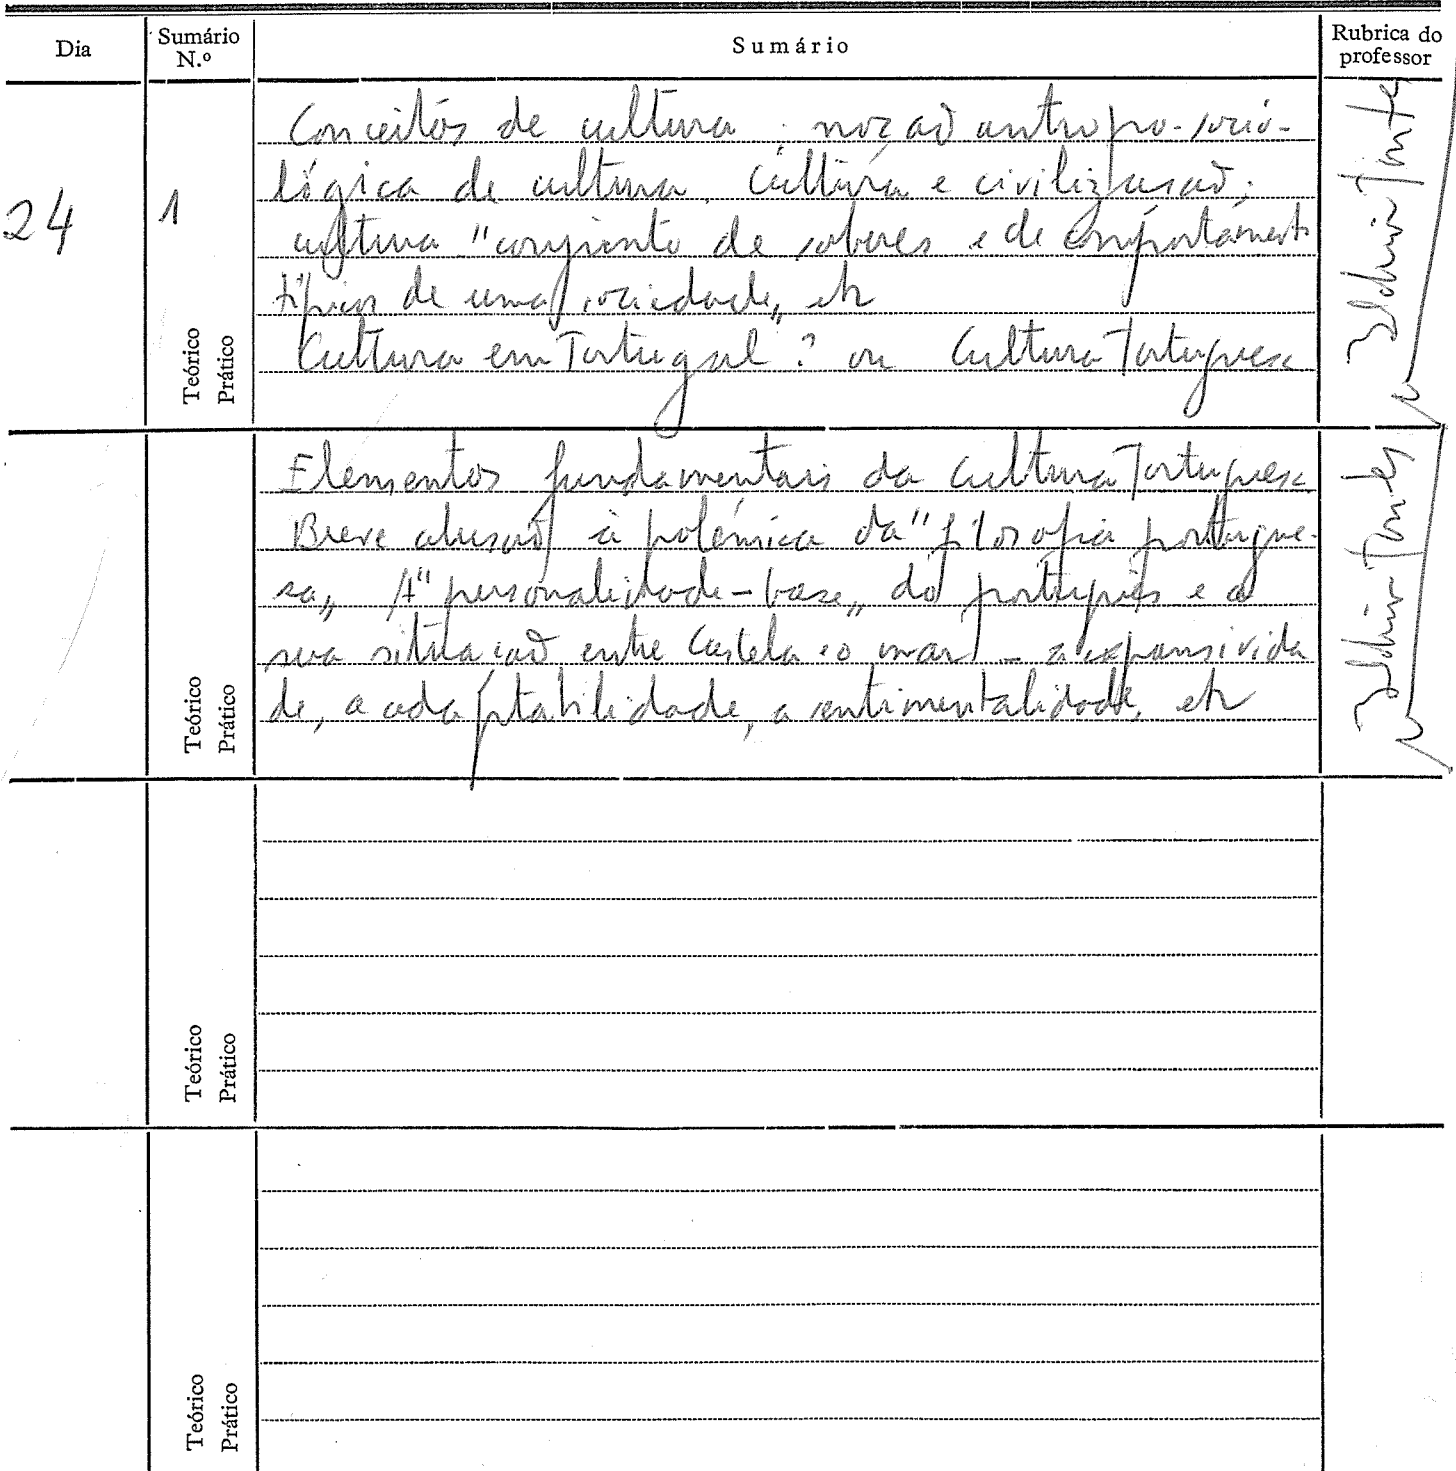 Dia
Sumário
N.º
Sumário
Rubrica do
professor
24
1
Conceitos de cultura: noção antropo-socio-
lógica de cultura. Cultura e civilização;
cultura "conjunto de saberes e de comportament
típicos de uma sociedade„ etc
Cultura em Portugal? ou Cultura Portuguesa
Teórico
Prático
Elementos fundamentais da Cultura Portuguesa
Breve alusão à polémica da "filosofia portugue-
sa„ A "personalidade-base„ do português e a
sua situação entre Castela e o mar - a expansivida
de, a adaptabilidade, a sentimentalidade, etc
Teórico
Prático
Teórico
Prático
Teórico
Prático